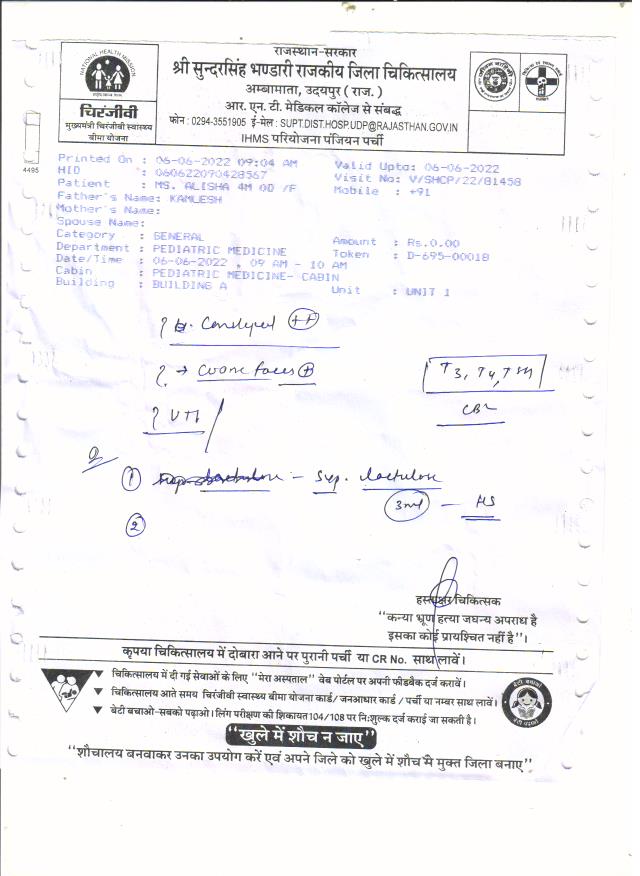 राजस्थान-सरकार
श्री सुन्दरसिंह भण्डारी राजकीय जिला चिकित्सालय
अम्बामाता, उदयपुर ( राज. )
आर. एन. टी. मेडिकल कॉलेज से संबद्ध
फोन : 0294-3551905 ई-मेल : SUPT.DIST.HOSP.UDP@RAJASTHAN.GOV.IN
IHMS परियोजना पंजियन पर्ची
NATIONAL HEALTH MISSION
चिरंजीवी
मुख्यमंत्री चिरंजीवी स्वास्थ्य
बीमा योजना
4495
Printed On : 06-06-2022 09:04 AM Valid Upto: 06-06-2022
HID : 060622090428567 Visit No: V/SHCP/22/81458
Patient : MS. ALISHA 4M 0D /F Mobile : +91
Father's Name: KAMLESH
Mother's Name:
Spouse Name:
Category : GENERAL Amount : Rs.0.00
Department : PEDIATRIC MEDICINE Token : D-695-00018
Date/Time : 06-06-2022 , 09 AM - 10 AM
Cabin : PEDIATRIC MEDICINE- CABIN
Building : BUILDING A Unit : UNIT 1
? → faces +
T3, T4, TSH
? UTI
① Syp. lactulose
3ml — HS
②
हस्ताक्षर चिकित्सक
"कन्या भ्रूण हत्या जघन्य अपराध है
इसका कोई प्रायश्चित नहीं है"।
कृपया चिकित्सालय में दोबारा आने पर पुरानी पर्ची या CR No. साथ लावें।
▼ चिकित्सालय में दी गई सेवाओं के लिए "मेरा अस्पताल" वेब पोर्टल पर अपनी फीडबैक दर्ज करावें।
▼ चिकित्सालय आते समय चिरंजीवी स्वास्थ्य बीमा योजना कार्ड/ जनआधार कार्ड / पर्ची या नम्बर साथ लावें।
▼ बेटी बचाओ-सबको पढ़ाओ। लिंग परीक्षण की शिकायत 104/108 पर निःशुल्क दर्ज कराई जा सकती है।
बेटी बचाओ
बेटी पढ़ाओ
"खुले में शौच न जाए"
"शौचालय बनवाकर उनका उपयोग करें एवं अपने जिले को खुले में शौच से मुक्त जिला बनाए"